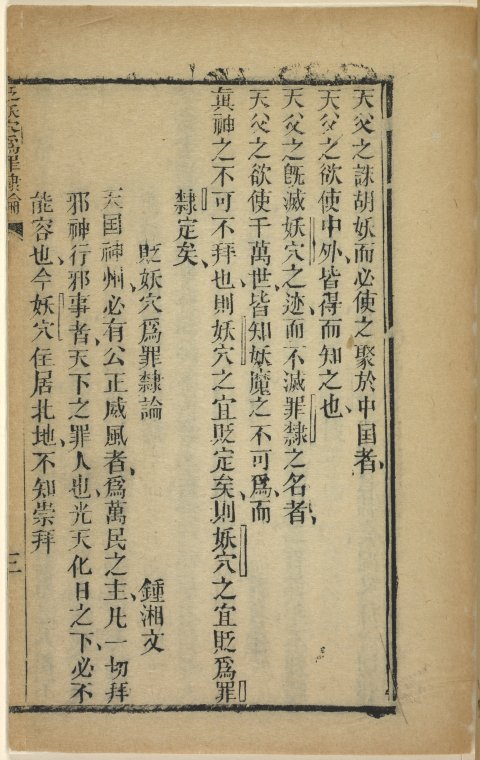 天父之誅胡妖而必使之聚於中囯者
天父之欲使中外皆得而知之也
天父之旣滅妖穴之迹而不滅罪隸之名者
天父之欲使千萬世皆知妖魔之不可爲而
眞神之不可不拜也則妖穴之宜貶定矣則妖穴之宜貶爲罪
隸定矣
貶妖穴爲罪隸論
鍾湘文
天囯神州必有公正威風者爲萬民之主凡一切拜
邪神行邪事者天下之罪人也光天化日之下必不
能容也今妖穴住居北地不知崇拜
貶妖穴爲罪隸論
三